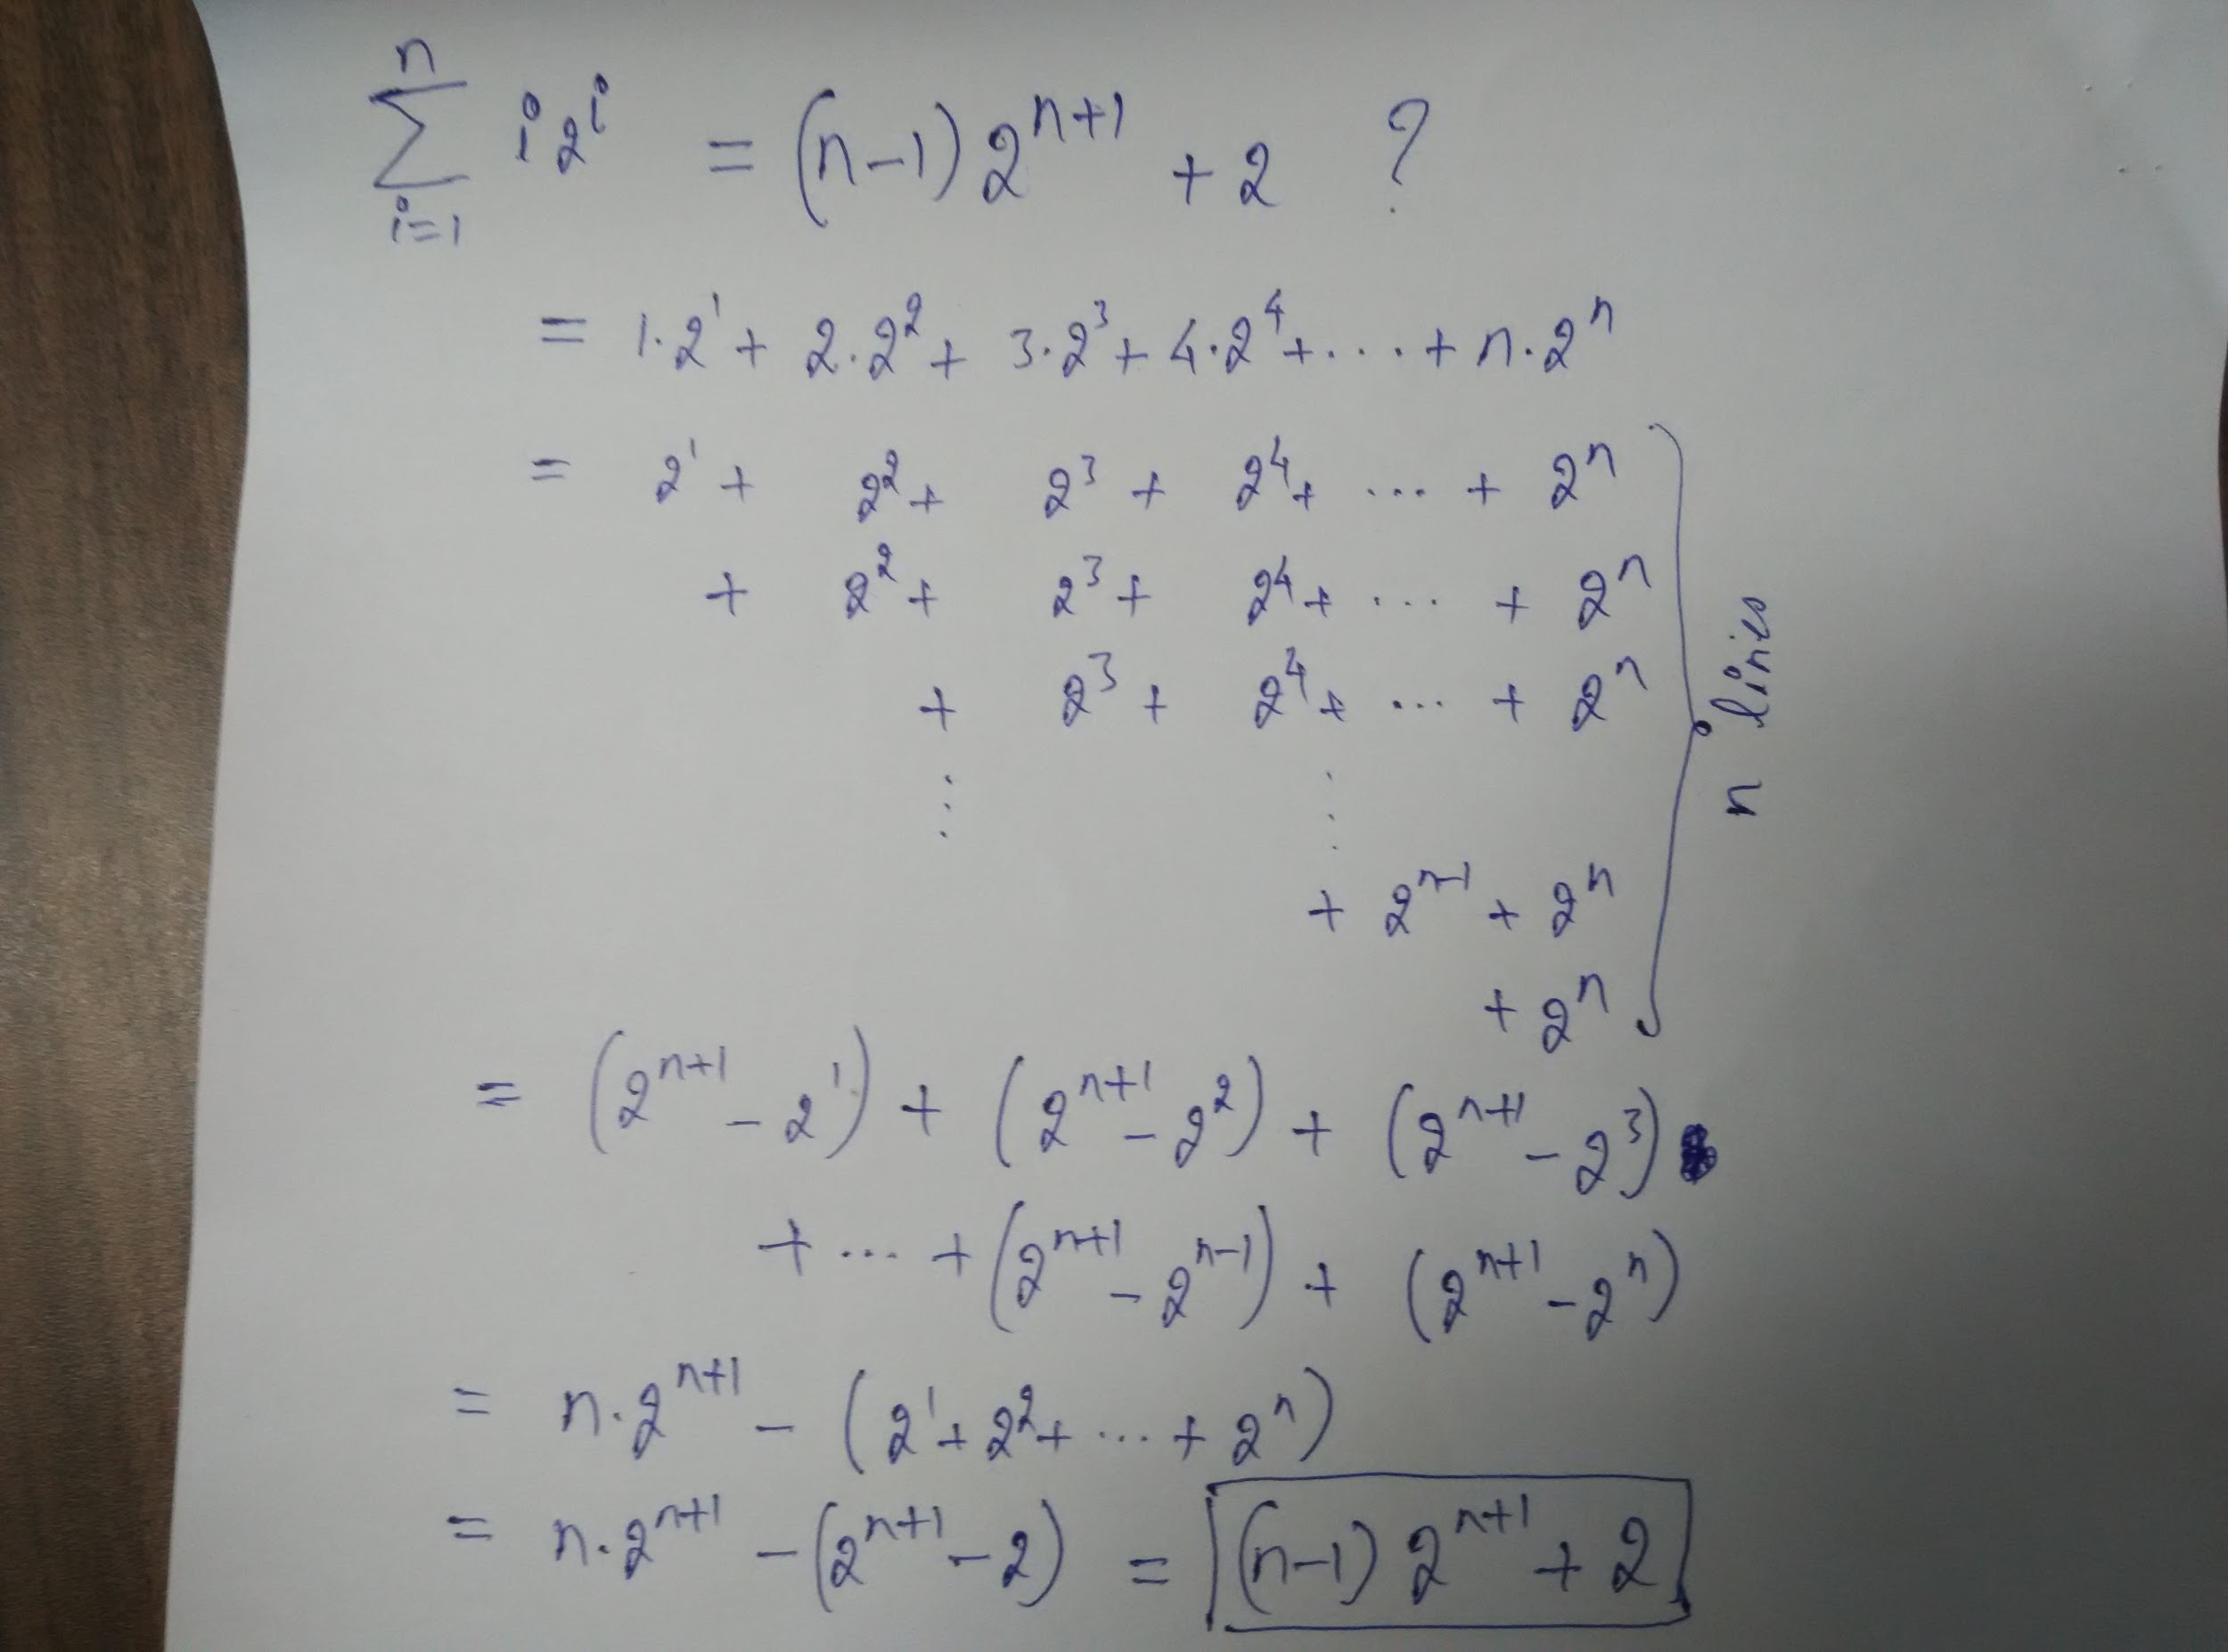 ∑_{i=1}^{n} i2^i = (n-1)2^{n+1} + 2 ?
= 1·2^1 + 2·2^2 + 3·2^3 + 4·2^4 + .... + n·2^n
= 2^1 + 2^2 + 2^3 + 2^4 + ... + 2^n
+ 2^2 + 2^3 + 2^4 + ... + 2^n
+ 2^3 + 2^4 + ... + 2^n
⋮ ⋮
n lines
+ 2^{n-1} + 2^n
+ 2^n
= (2^{n+1} - 2^1) + (2^{n+1} - 2^2) + (2^{n+1} - 2^3)
+ ... + (2^{n+1} - 2^{n-1}) + (2^{n+1} - 2^n)
= n·2^{n+1} - (2^1 + 2^2 + ... + 2^n)
= n·2^{n+1} - (2^{n+1} - 2) = (n-1)2^{n+1} + 2